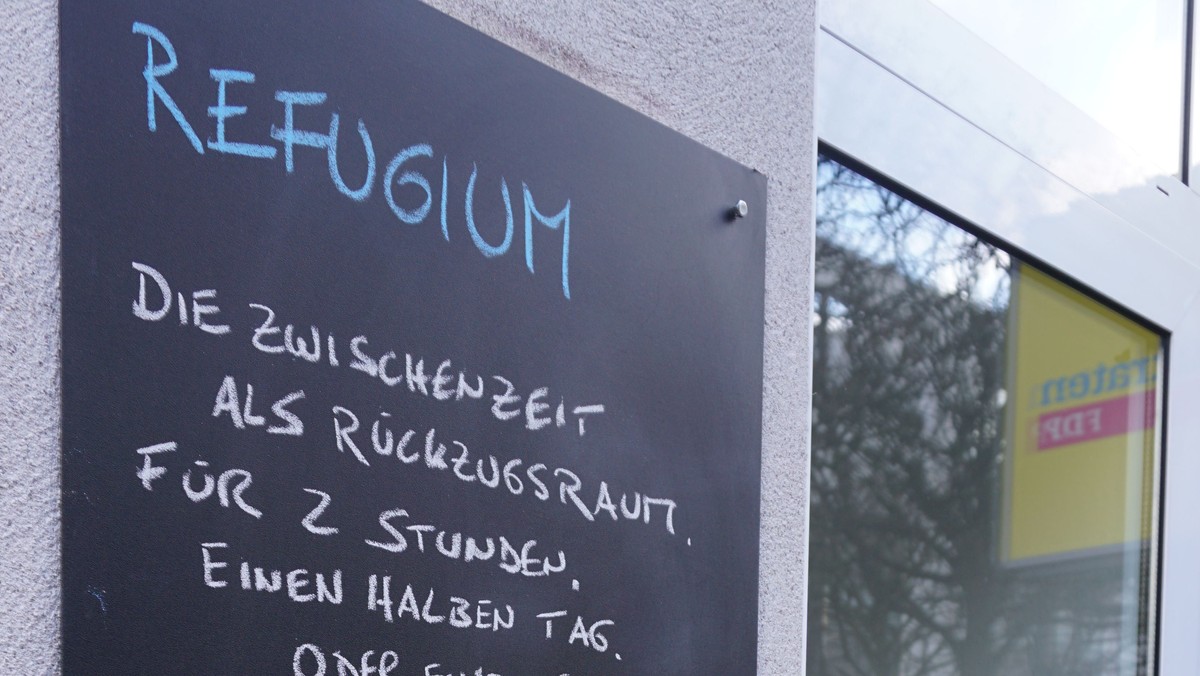 REFUGIUM
DIE ZWISCHENZEIT
ALS RÜCKZUGSRAUM.
FÜR 2 STUNDEN.
EINEN HALBEN TAG.
ODER
raten
FDP